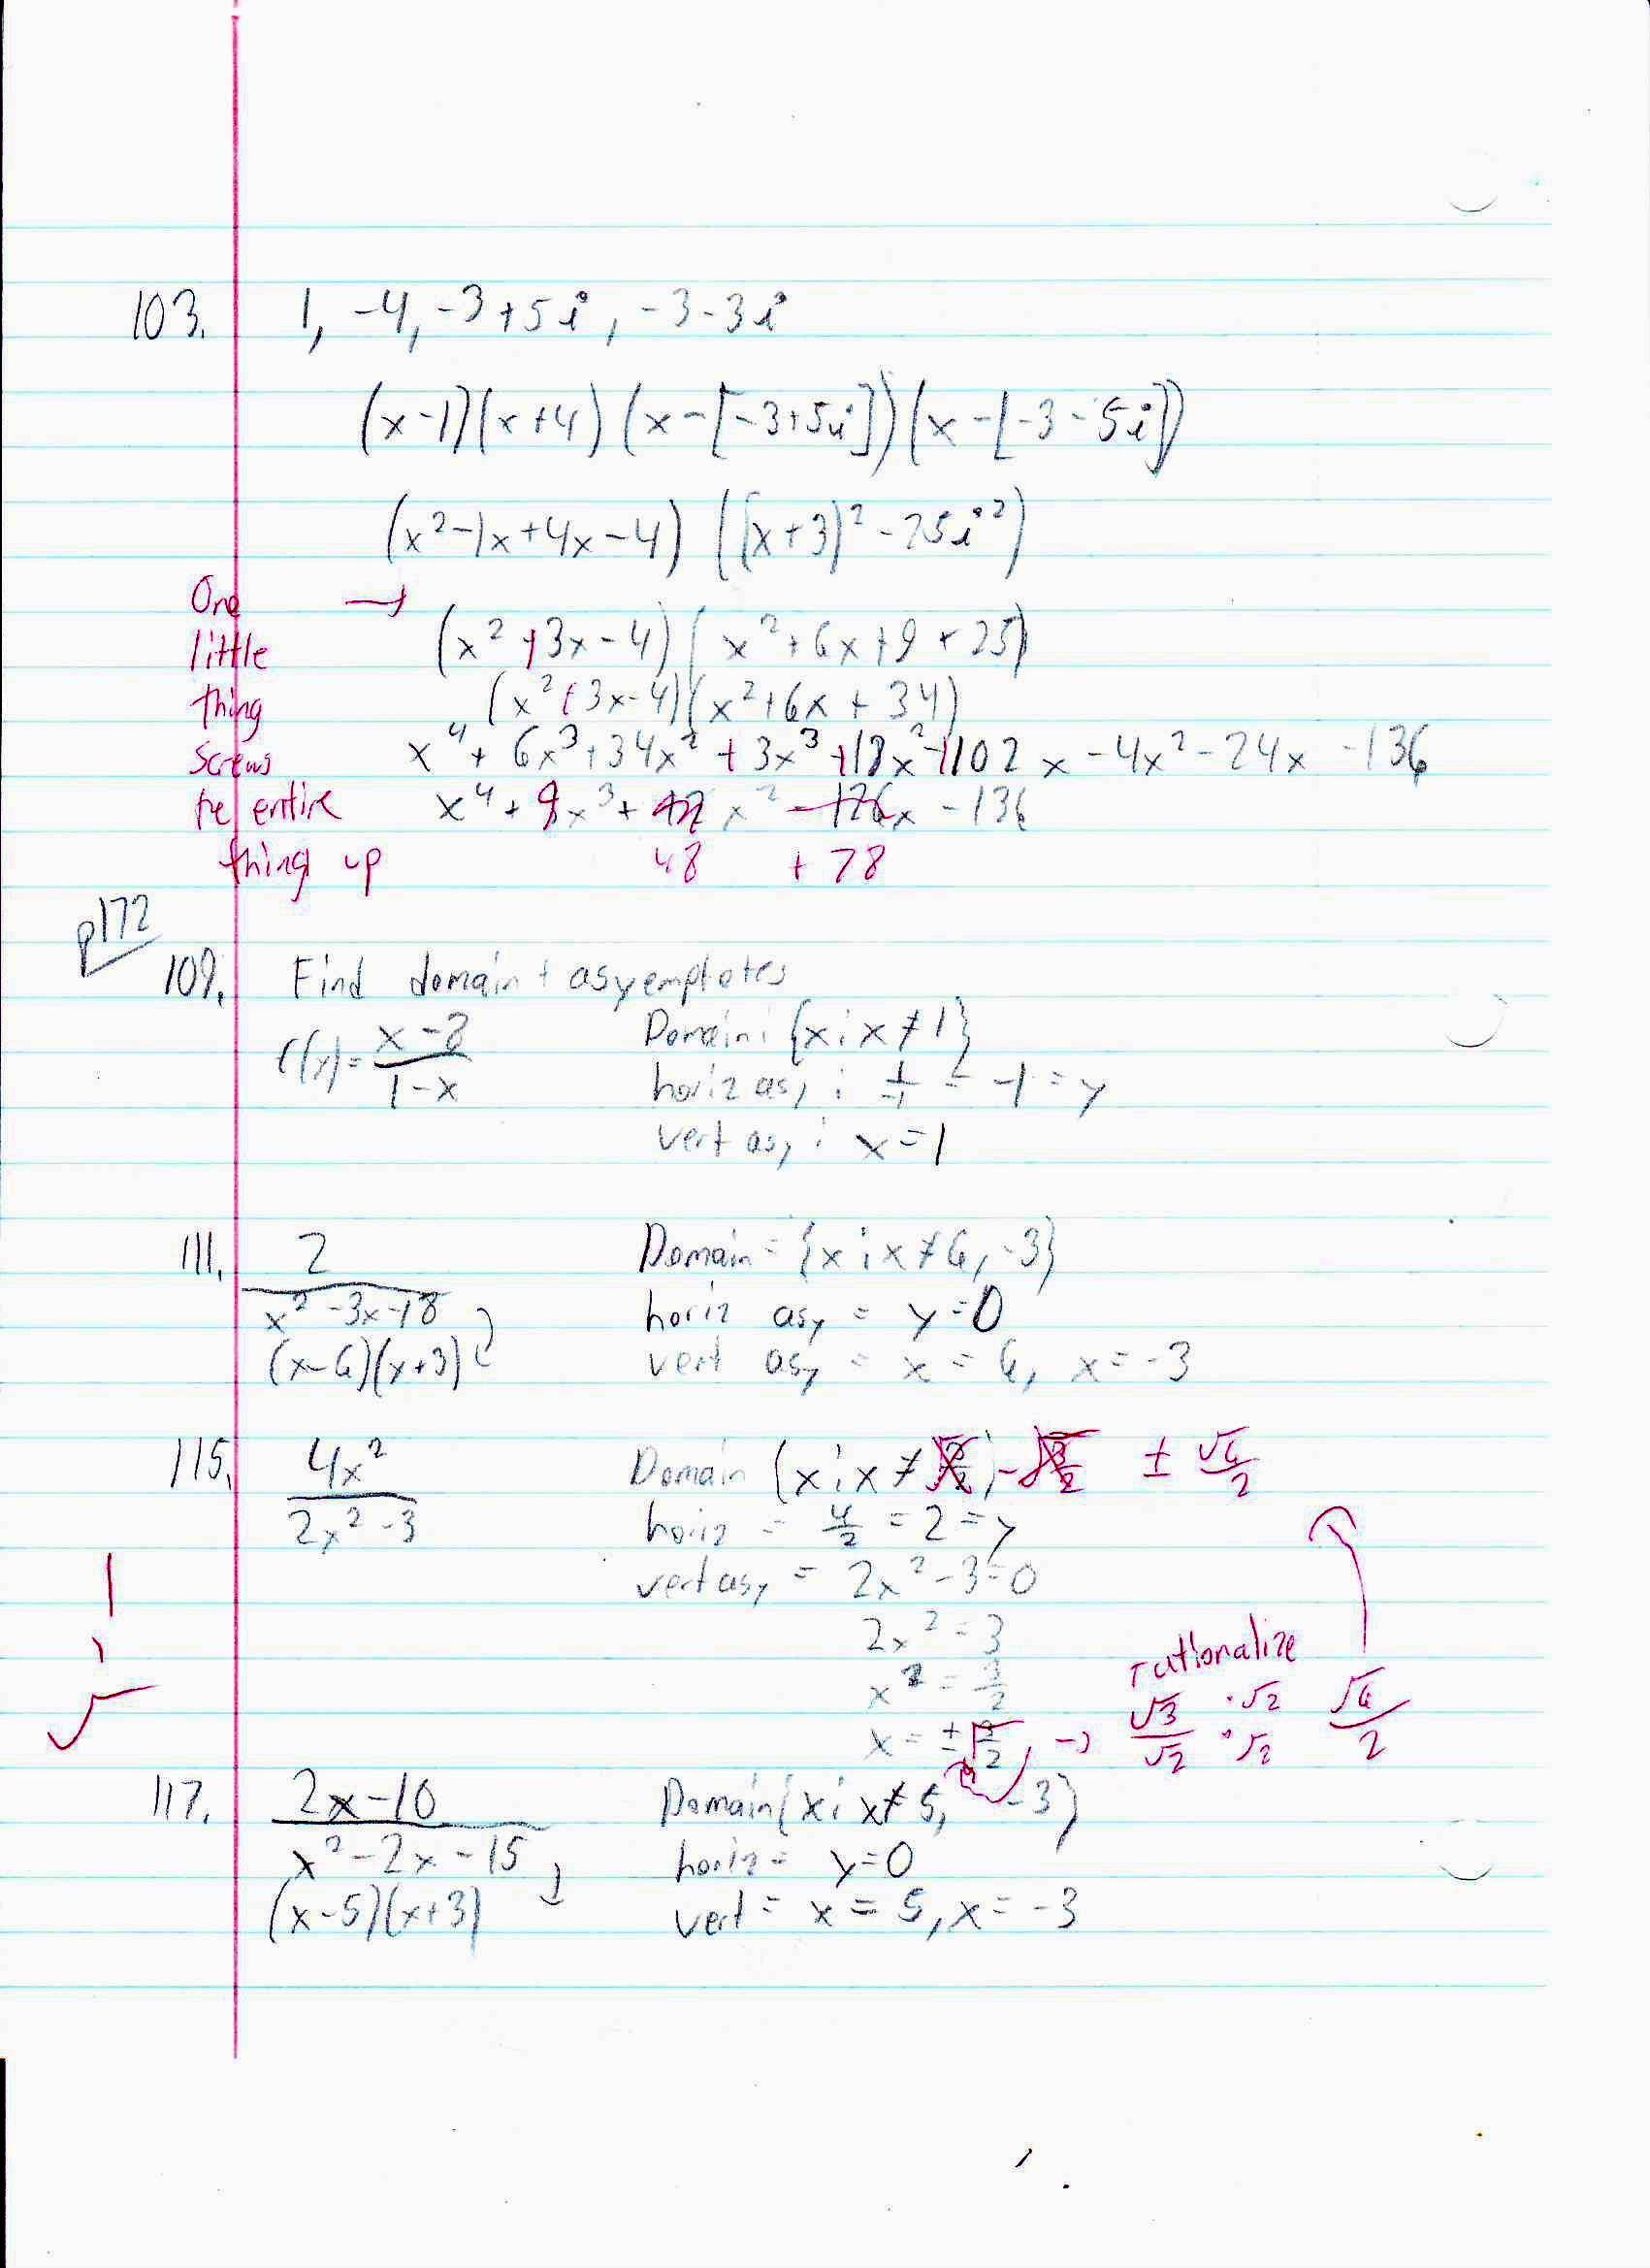 103. 1, -4, -3+5i, -3-3i
(x-1)(x+4)(x-[-3+5i])(x-[-3-5i])
(x²-1x+4x-4) ((x+3)²-25i²)
One →
little (x²+3x-4)(x²+6x+9+25)
thing (x²+3x-4)(x²+6x+34)
screws x⁴+6x³+34x²+3x³+18x²+102x-4x²-24x-136
he entire x⁴+9x³+ x²-126x-136
thing up 48 +78
p172
109. Find domain + asyemptotes
f(x)= x-8 / 1-x Domain: {x:x≠1}
horiz asy: 1/-1 = -1 = y
vert asy: x=1
111. 2 / x²-3x-18 Domain = {x:x≠6,-3}
horiz asy = y=0
(x-6)(x+3) vert asy = x=6, x=-3
115. 4x² / 2x²-3 Domain {x:x≠ , - ± √6/2
horiz = 4/2 = 2 = y
vert asy = 2x²-3=0
2x²=3
x²=3/2 rationalize
x=±√3/2 → √3/√2 ·√2/·√2 √6/2
117. 2x-10 / x²-2x-15 Domain{x:x≠5, -3}
horiz = y=0
(x-5)(x+3) vert = x=5, x=-3